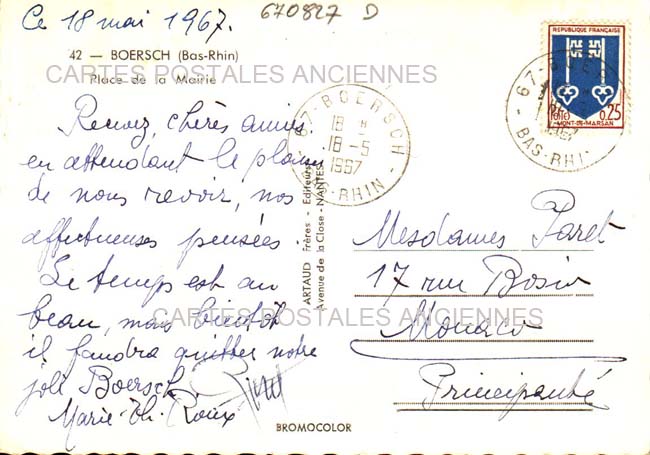 Ce 18 mai 1967.
670827 D
42 — BOERSCH (Bas-Rhin)
CARTES POSTALES ANCIENNES
Place de la Mairie
Recevez, chères amies,
en attendant le plaisir
de nous revoir, nos
affectueuses pensées.
Le temps est au
beau, mais bientôt
il faudra quitter notre
joli Boersch.
Marie-Th. Roux
67-BOERSCH
18 H
18-5
1967
BAS-RHIN
ARTAUD Frères - Editeurs
Avenue de la Close - NANTES
REPUBLIQUE FRANÇAISE
POSTES
0,25
MONT-DE-MARSAN
67-BOERSCH
1967
BAS-RHIN
Mesdames Paret
17 rue Bosio
Monaco
Principauté
CARTES POSTALES ANCIENNES
BROMOCOLOR